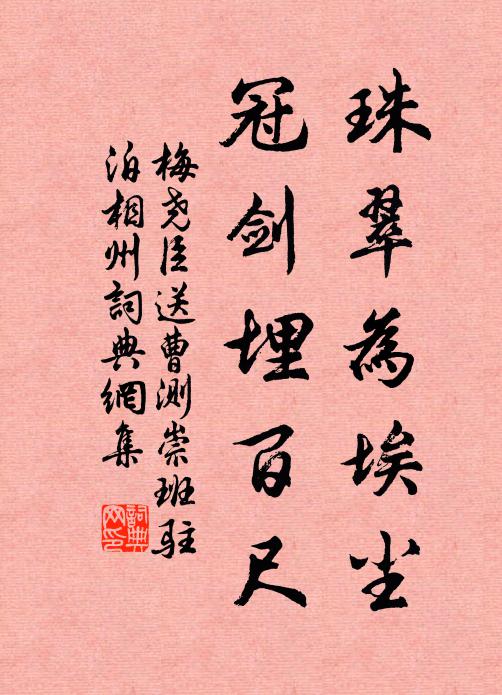 珠翠為埃尘
冠剑埋百尺
梅尧臣送曹测崇班駐
泊相州詞典網集
詞典网印